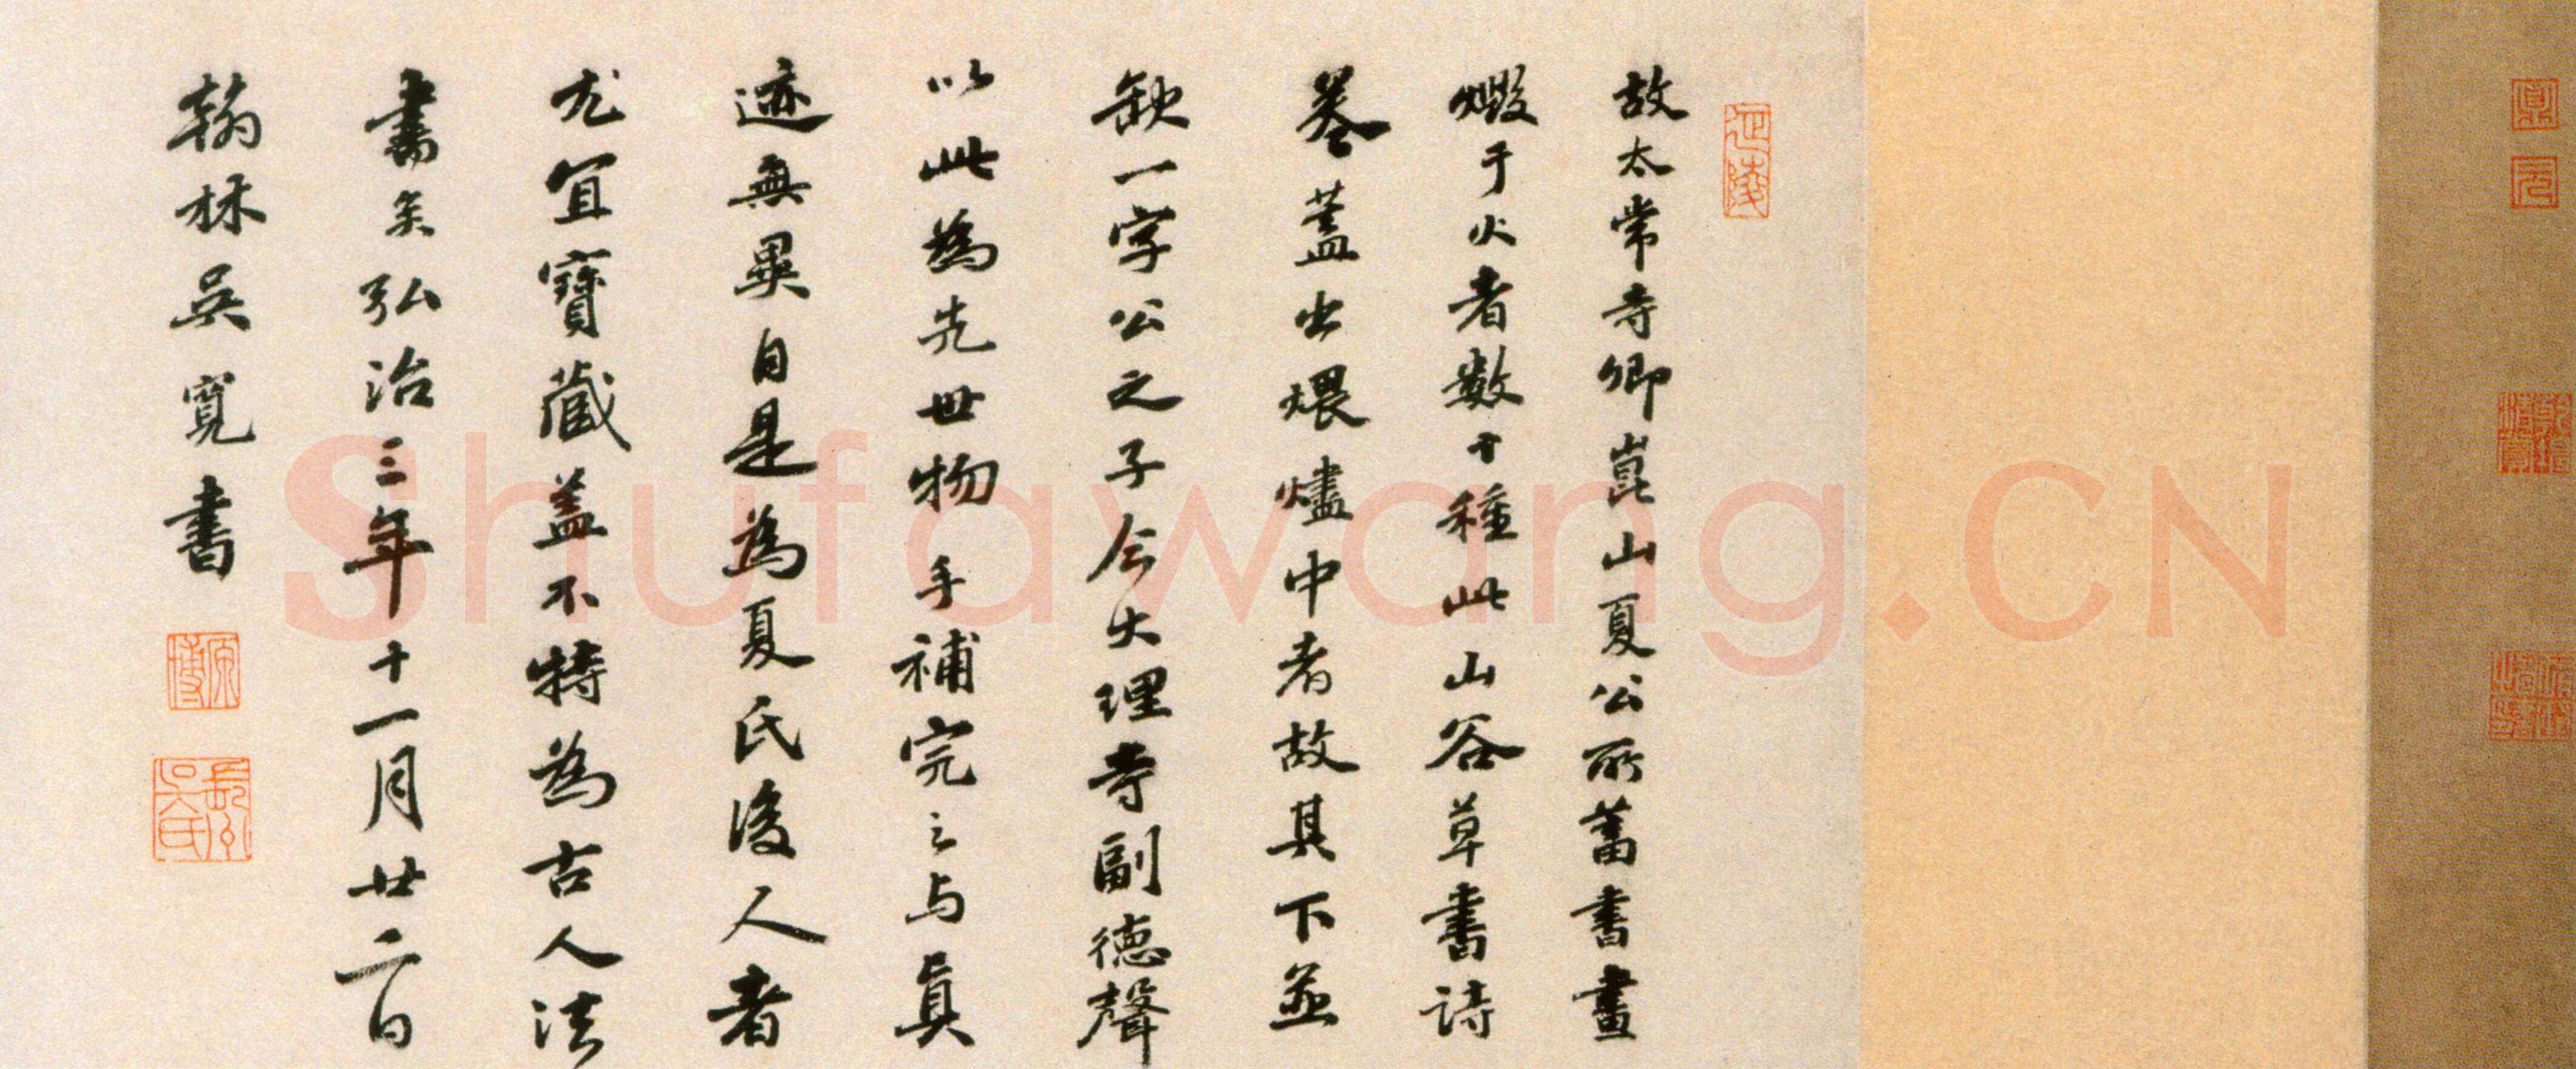 故太常寺卿崑山夏公所蓄書畫
燬于火者數十種此山谷草書詩
卷蓋出煨燼中者故其下並
缺一字公之子今大理寺副德聲
以此為先世物手補完之与真
迹無異自是為夏氏後人者
尤宜寶藏蓋不特為古人法
書矣弘治三年十一月廿二日
翰林吳寬書
原博
Shufawang.CN